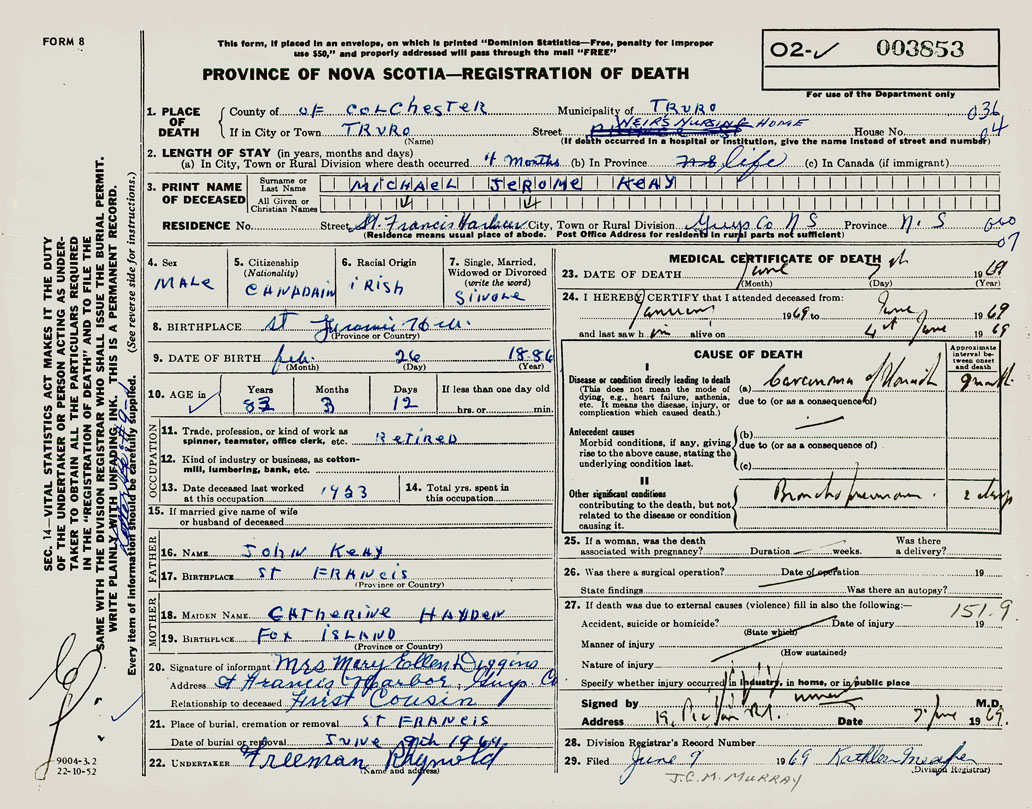 FORM 8
This form, if placed in an envelope, on which is printed "Dominion Statistics—Free, penalty for improper
use $50," and properly addressed will pass through the mail "FREE"
PROVINCE OF NOVA SCOTIA—REGISTRATION OF DEATH
02-✓ 003853
For use of the Department only
1. PLACE OF DEATH
County of OF COLCHESTER Municipality of TRURO 036
WEIRS NURSING HOME
If in City or Town TRURO Street House No. 04
(Name) (If death occurred in a hospital or institution, give the name instead of street and number)
2. LENGTH OF STAY (in years, months and days)
(a) In City, Town or Rural Division where death occurred 4 Months (b) In Province life (c) In Canada (if immigrant)
3. PRINT NAME OF DECEASED
Surname or Last Name MICHAEL JEROME KEAY
All Given or Christian Names
RESIDENCE No. Street St. Francis Harbour City, Town or Rural Division Guys Co N S Province N. S
(Residence means usual place of abode. Post Office Address for residents in rural parts not sufficient)
07
4. Sex
MALE
5. Citizenship
(Nationality)
CANADAIN
6. Racial Origin
IRISH
7. Single, Married,
Widowed or Divorced
(write the word)
SINGLE
8. BIRTHPLACE St
(Province or Country)
9. DATE OF BIRTH feb. 26 1886
(Month) (Day) (Year)
10. AGE in
Years Months Days If less than one day old
83 3 12 hrs. or min.
OCCUPATION
11. Trade, profession, or kind of work as
spinner, teamster, office clerk, etc. RETIRED
12. Kind of industry or business, as cotton-
mill, lumbering, bank, etc.
13. Date deceased last worked
at this occupation 1953
14. Total yrs. spent in
this occupation
15. If married give name of wife
or husband of deceased
FATHER
16. NAME JOHN KEAY
17. BIRTHPLACE ST FRANCIS
(Province or Country)
MOTHER
18. MAIDEN NAME CATHERINE HAYDEN
19. BIRTHPLACE FOX ISLAND
(Province or Country)
20. Signature of informant Mrs Mary Ellen Diggins
Address St Francis Harbor, Guys Co
Relationship to deceased First Cousin
21. Place of burial, cremation or removal ST FRANCIS
Date of burial or removal JUNE 9th 1969
22. UNDERTAKER Freeman Reynold
(Name and address)
MEDICAL CERTIFICATE OF DEATH
23. DATE OF DEATH June 7th 1969
(Month) (Day) (Year)
24. I HEREBY CERTIFY that I attended deceased from:
January 1969 to June 1969
and last saw him alive on 4th June 1969
CAUSE OF DEATH
Approximate interval between onset and death
I
Disease or condition directly leading to death
(This does not mean the mode of
dying, e.g., heart failure, asthenia,
etc. It means the disease, injury, or
complication which caused death.)
(a) Carcinoma of Stomach
due to (or as a consequence of)
Antecedent causes
Morbid conditions, if any, giving
rise to the above cause, stating the
underlying condition last.
(b)
due to (or as a consequence of)
(c)
II
Other significant conditions
contributing to the death, but not
related to the disease or condition
causing it.
Bronchopneumonia. 2 days
25. If a woman, was the death
associated with pregnancy? Duration weeks. Was there a delivery?
26. Was there a surgical operation? Date of operation 19
State findings Was there an autopsy?
27. If death was due to external causes (violence) fill in also the following:— 151.9
Accident, suicide or homicide? Date of injury 19
(State which)
Manner of injury
(How sustained)
Nature of injury
Specify whether injury occurred in industry, in home, or in public place
Signed by M.D.
Address Date 7 June 1969.
28. Division Registrar's Record Number
29. Filed June 9 1969 Kathleen
(Division Registrar)
J.C.M. MURRAY
SEC. 14—VITAL STATISTICS ACT MAKES IT THE DUTY
OF THE UNDERTAKER OR PERSON ACTING AS UNDER-
TAKER TO OBTAIN ALL THE PARTICULARS REQUIRED
IN THE "REGISTRATION OF DEATH" AND TO FILE THE
SAME WITH THE DIVISION REGISTRAR WHO SHALL ISSUE THE BURIAL PERMIT.
WRITE PLAINLY WITH UNFADING INK. THIS IS A PERMANENT RECORD.
Every item of information should be carefully supplied. (See reverse side for instructions.)
9004-3.2
22-10-52